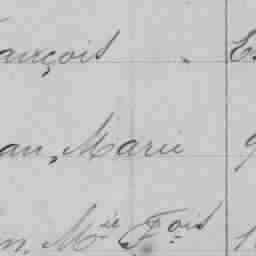 ançois
an, Marie
n, Mie Fois